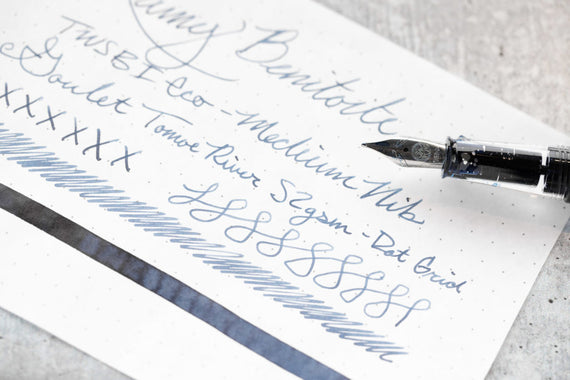 Benitoite
TWSBI Eco - Medium Nib
Goulet Tomoe River 52gsm - Dot Grid
XXXXXXX